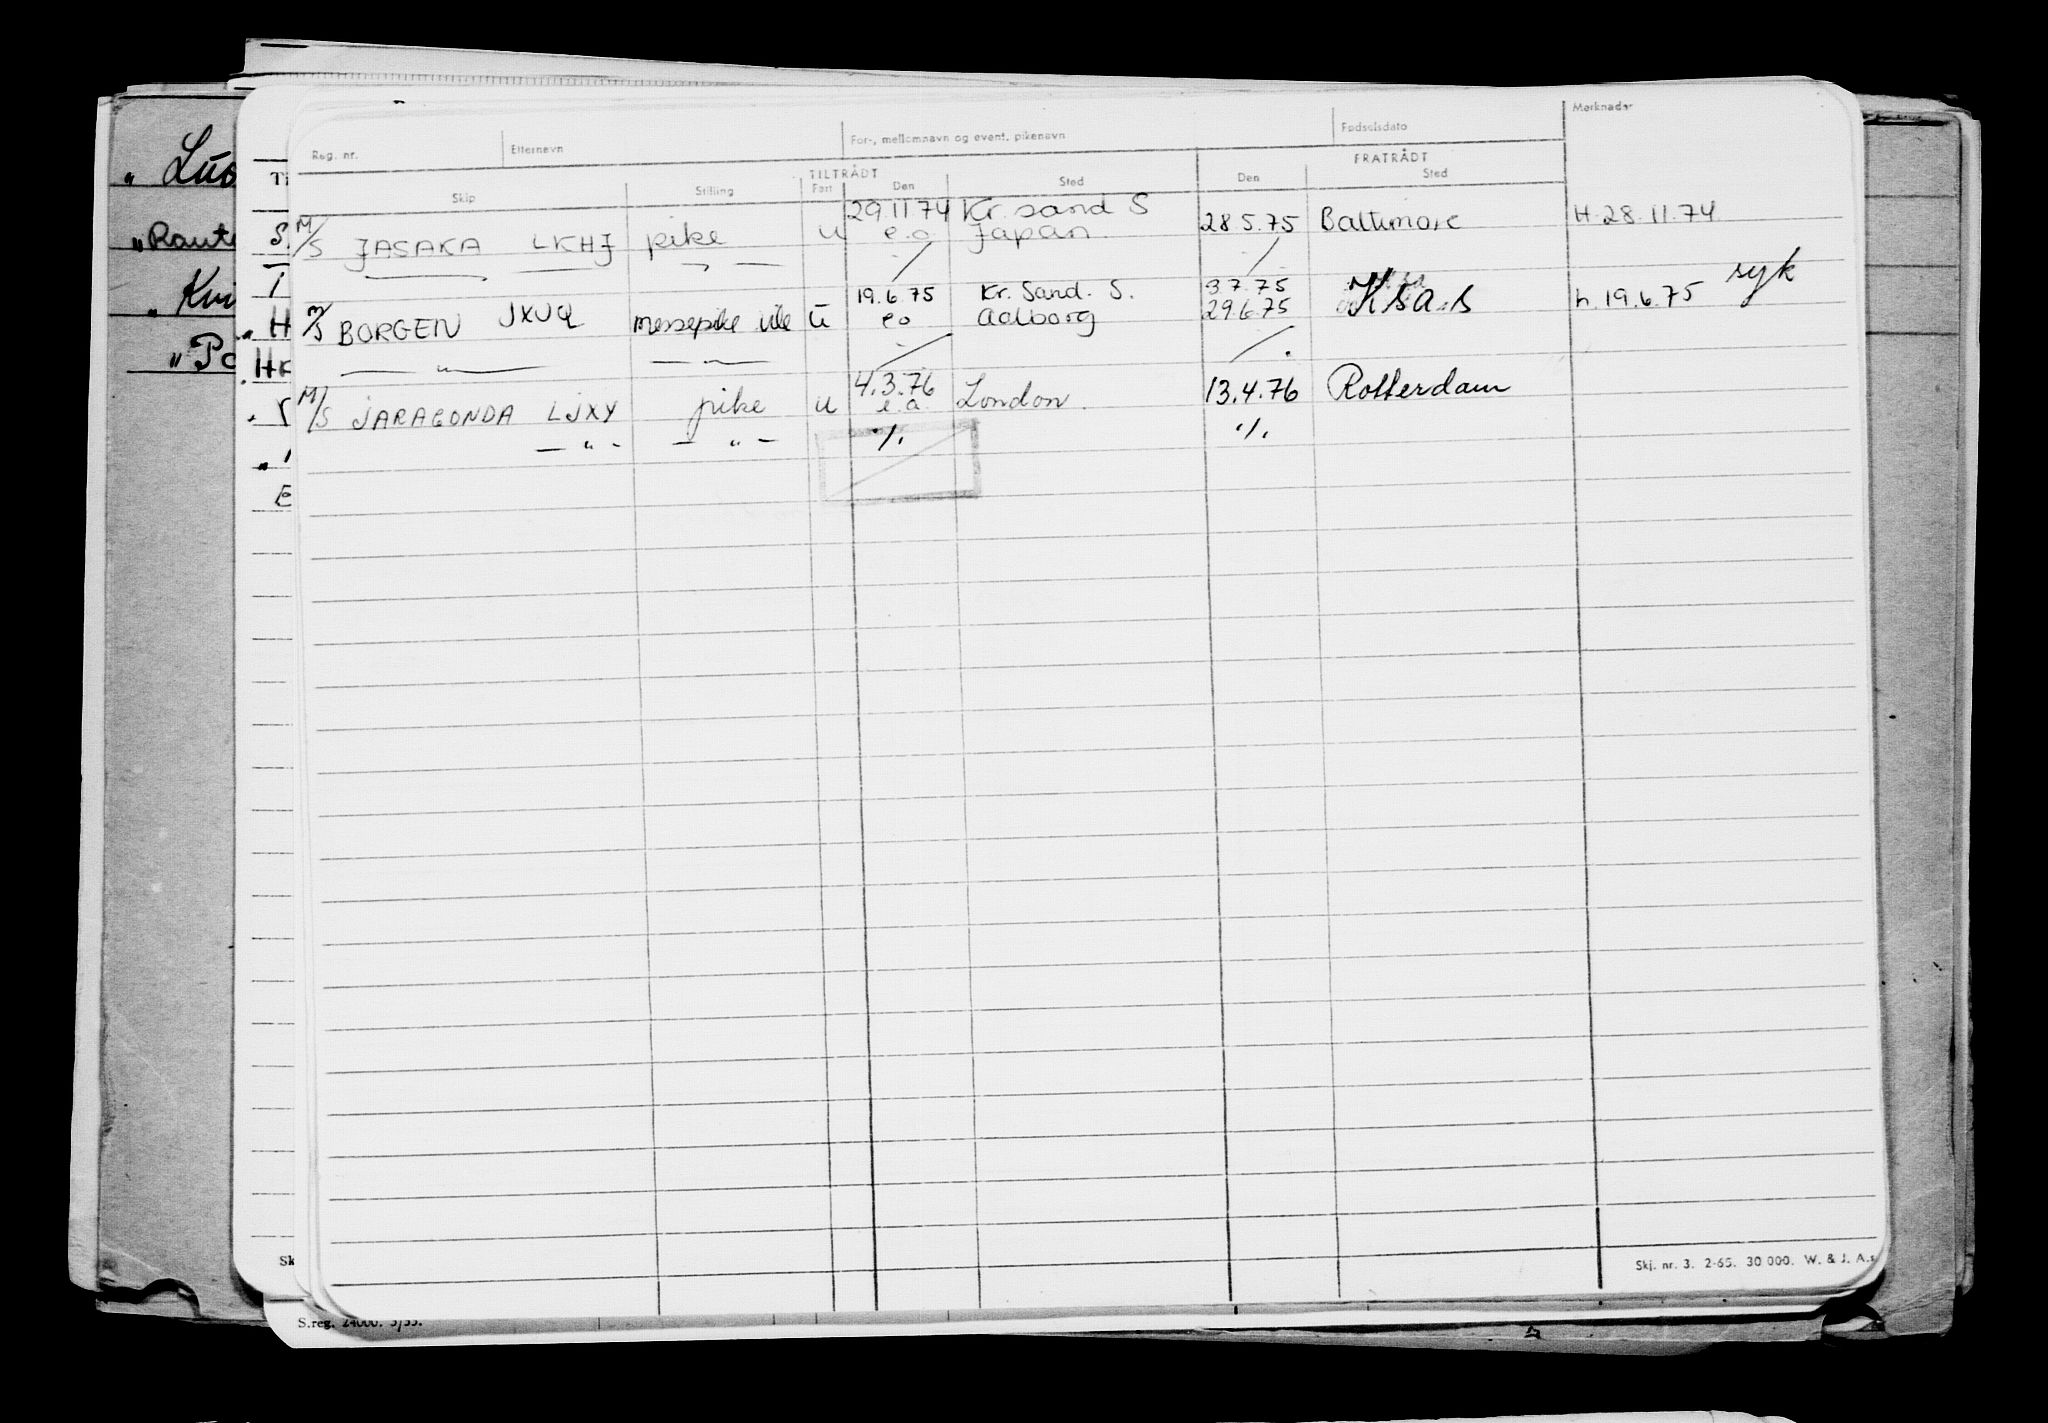 Merknader
Reg. nr. Etternavn For-, mellomnavn og event. pikenavn Fødselsdato
TILTRÅDT FRATRÅDT
Skip Stilling Fart Den Sted Den Sted
29.11.74 Kr. sand S
M/S JASAKA LKHJ pike u e.o Japan 28.5.75 Baltimore H. 28.11.74
19.6.75 Kr. Sand. S. 3.7.75 syk
M/S BORGEN JXUQ messepike u eo Aalborg 29.6.75 h. 19.6.75
— " — — " —
4.3.76
M/S JARAGONDA LJXY pike u e.a. London 13.4.76 Rotterdam
— " — — " — ·/. ·/.
Skj. nr. 3. 2-65. 30 000. W. & J. A.s
S.reg. 24000. 5/55.